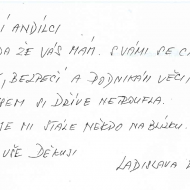 Í ANDÍLCI
DA ŽE VÁS MÁM. S VÁMI SE C
, BEZPEČÍ A PODNIKÁM VĚCI
EM SI DŘÍVE NETROUFLA.
E MI STÁLE NĚKDO NA BLÍZKU.
VŠE DĚKUJI
LADISLAVA